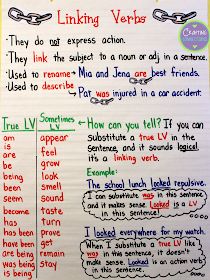 Linking Verbs
Crafting
Connections
• They do not express action.
• They link the subject to a noun or adj. in a sentence.
• Used to rename → Mia and Jena are best friends.
• Used to describe
Pat was injured in a car accident.
True LV
Sometimes LV
am appear
is feel
are grow
be look
being smell
been sound
seem taste
become turn
has prove
have been get
are being remain
was being stay
is being
How can you tell? If you can
substitute a true LV in the
sentence, and it sounds logical
it's a linking verb.
Example:
The school lunch looked repulsive.
I can substitute was in this sentence
and it makes sense. Looked is a LV
in this sentence!
I looked everywhere for my watch.
When I substitute a true LV like
was in this sentence, it doesn't
make sense. Looked is an action verb
in this sentence!